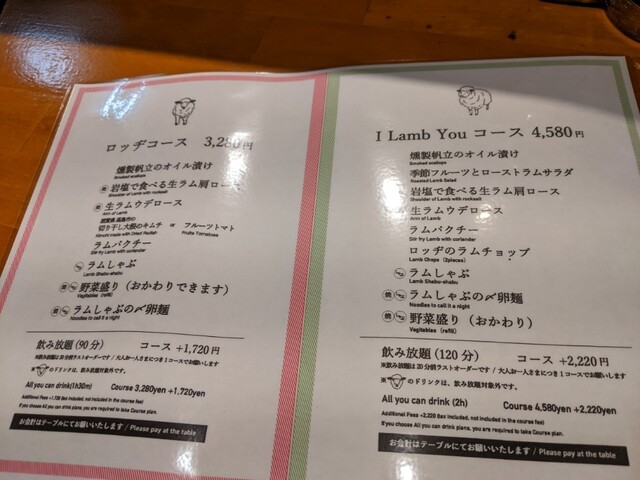 ロッヂコース 3,280円
燻製帆立のオイル漬け
Smoked scallops
岩塩で食べる生ラム肩ロース
Shoulder of Lamb with rocksalt
生ラムウデロース
Arm of Lamb
切り干し大根のキムチ or フルーツトマト
Kimchi made with Dried Radish Fruits Tomatoes
ラムパクチー
Stir fry Lamb with coriander
ラムしゃぶ
Lamb Shabu-shabu
野菜盛り（おかわりできます）
Vegitables (refill)
ラムしゃぶの〆卵麺
Noodles to call it a night
飲み放題（90分） コース +1,720円
※飲み放題は20分前ラストオーダーです / 大人お一人さまにつき1コースでお願いします
※のドリンクは、飲み放題対象外です。
All you can drink(1h30m) Course 3,280yen +1,720yen
Additional Fess +1,720 (tax included, not included in the course fee)
If you choose All you can drink plans, you are required to take Course plan.
お会計はテーブルにてお願いいたします / Please pay at the table
I Lamb You コース 4,580円
燻製帆立のオイル漬け
Smoked scallops
季節フルーツとローストラムサラダ
Roasted Lamb Salad
岩塩で食べる生ラム肩ロース
Shoulder of Lamb with rocksalt
生ラムウデロース
Arm of Lamb
ラムパクチー
Stir fry Lamb with coriander
ロッヂのラムチョップ
Lamb Chops (2pieces)
ラムしゃぶ
Lamb Shabu-shabu
焼 ラムしゃぶの〆卵麺
Noodles to call it a night
焼 野菜盛り（おかわり）
Vegitables (refill)
飲み放題（120分） コース +2,220円
※飲み放題は20分前ラストオーダーです / 大人お一人さまにつき1コースでお願いします
※のドリンクは、飲み放題対象外です。
All you can drink (2h) Course 4,580yen +2,220yen
Additional Fess +2,220 (tax included, not included in the course fee)
If you choose All you can drink plans, you are required to take Course plan.
お会計はテーブルにてお願いいたします / Please pay at the table